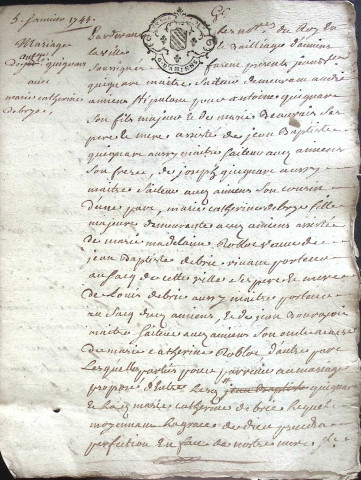 5. Janvier 1744.
Mariage
antoine quignare
avec
marie catherine
debrye
Pardevant les no.res du Roy en
la ville Bailliage d'amiens
soussignez furent presens
quignare maitre saiteur demeurant audit
amiens stipulant pour antoine quignare
son fils majeur et de marie Beauvais ses
pere et mere assisté de jean Baptiste
quignare aussy maitre saiteur a amiens
son frere, de joseph quignare aussy
maitre saiteur audit amiens son cousin
d'une part, marie catherine debrye fille
majeure demeurante audit amiens assistée
de marie madelaine Robloe veuve de
jean Baptiste debrie vivant porteur
au sacq de cette ville ses pere et mere
de Louis debrie aussy maitre porteur
au sacq audit amiens, et de jean Bourgeois
maitre saiteur audit amiens son oncle a cause
de marie catherine Robloe d'autre part
Lesquelles parties pour parvenir au mariage
proposé d'Entre led. quignare
et lad. marie catherine debrie lequel
moyennant la grace de dieu prendra
perfection En face de nostre mere ste